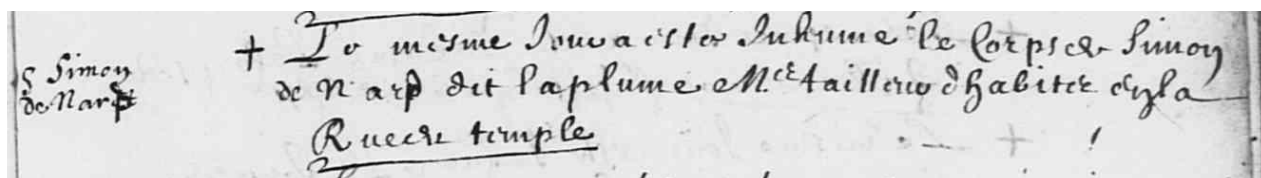 Simon
de Narp
+ Le mesme Jour a estée Inhumé le Corps de Simon
de Narp dit laplume Me. tailleur d habits en la
Rue du temple